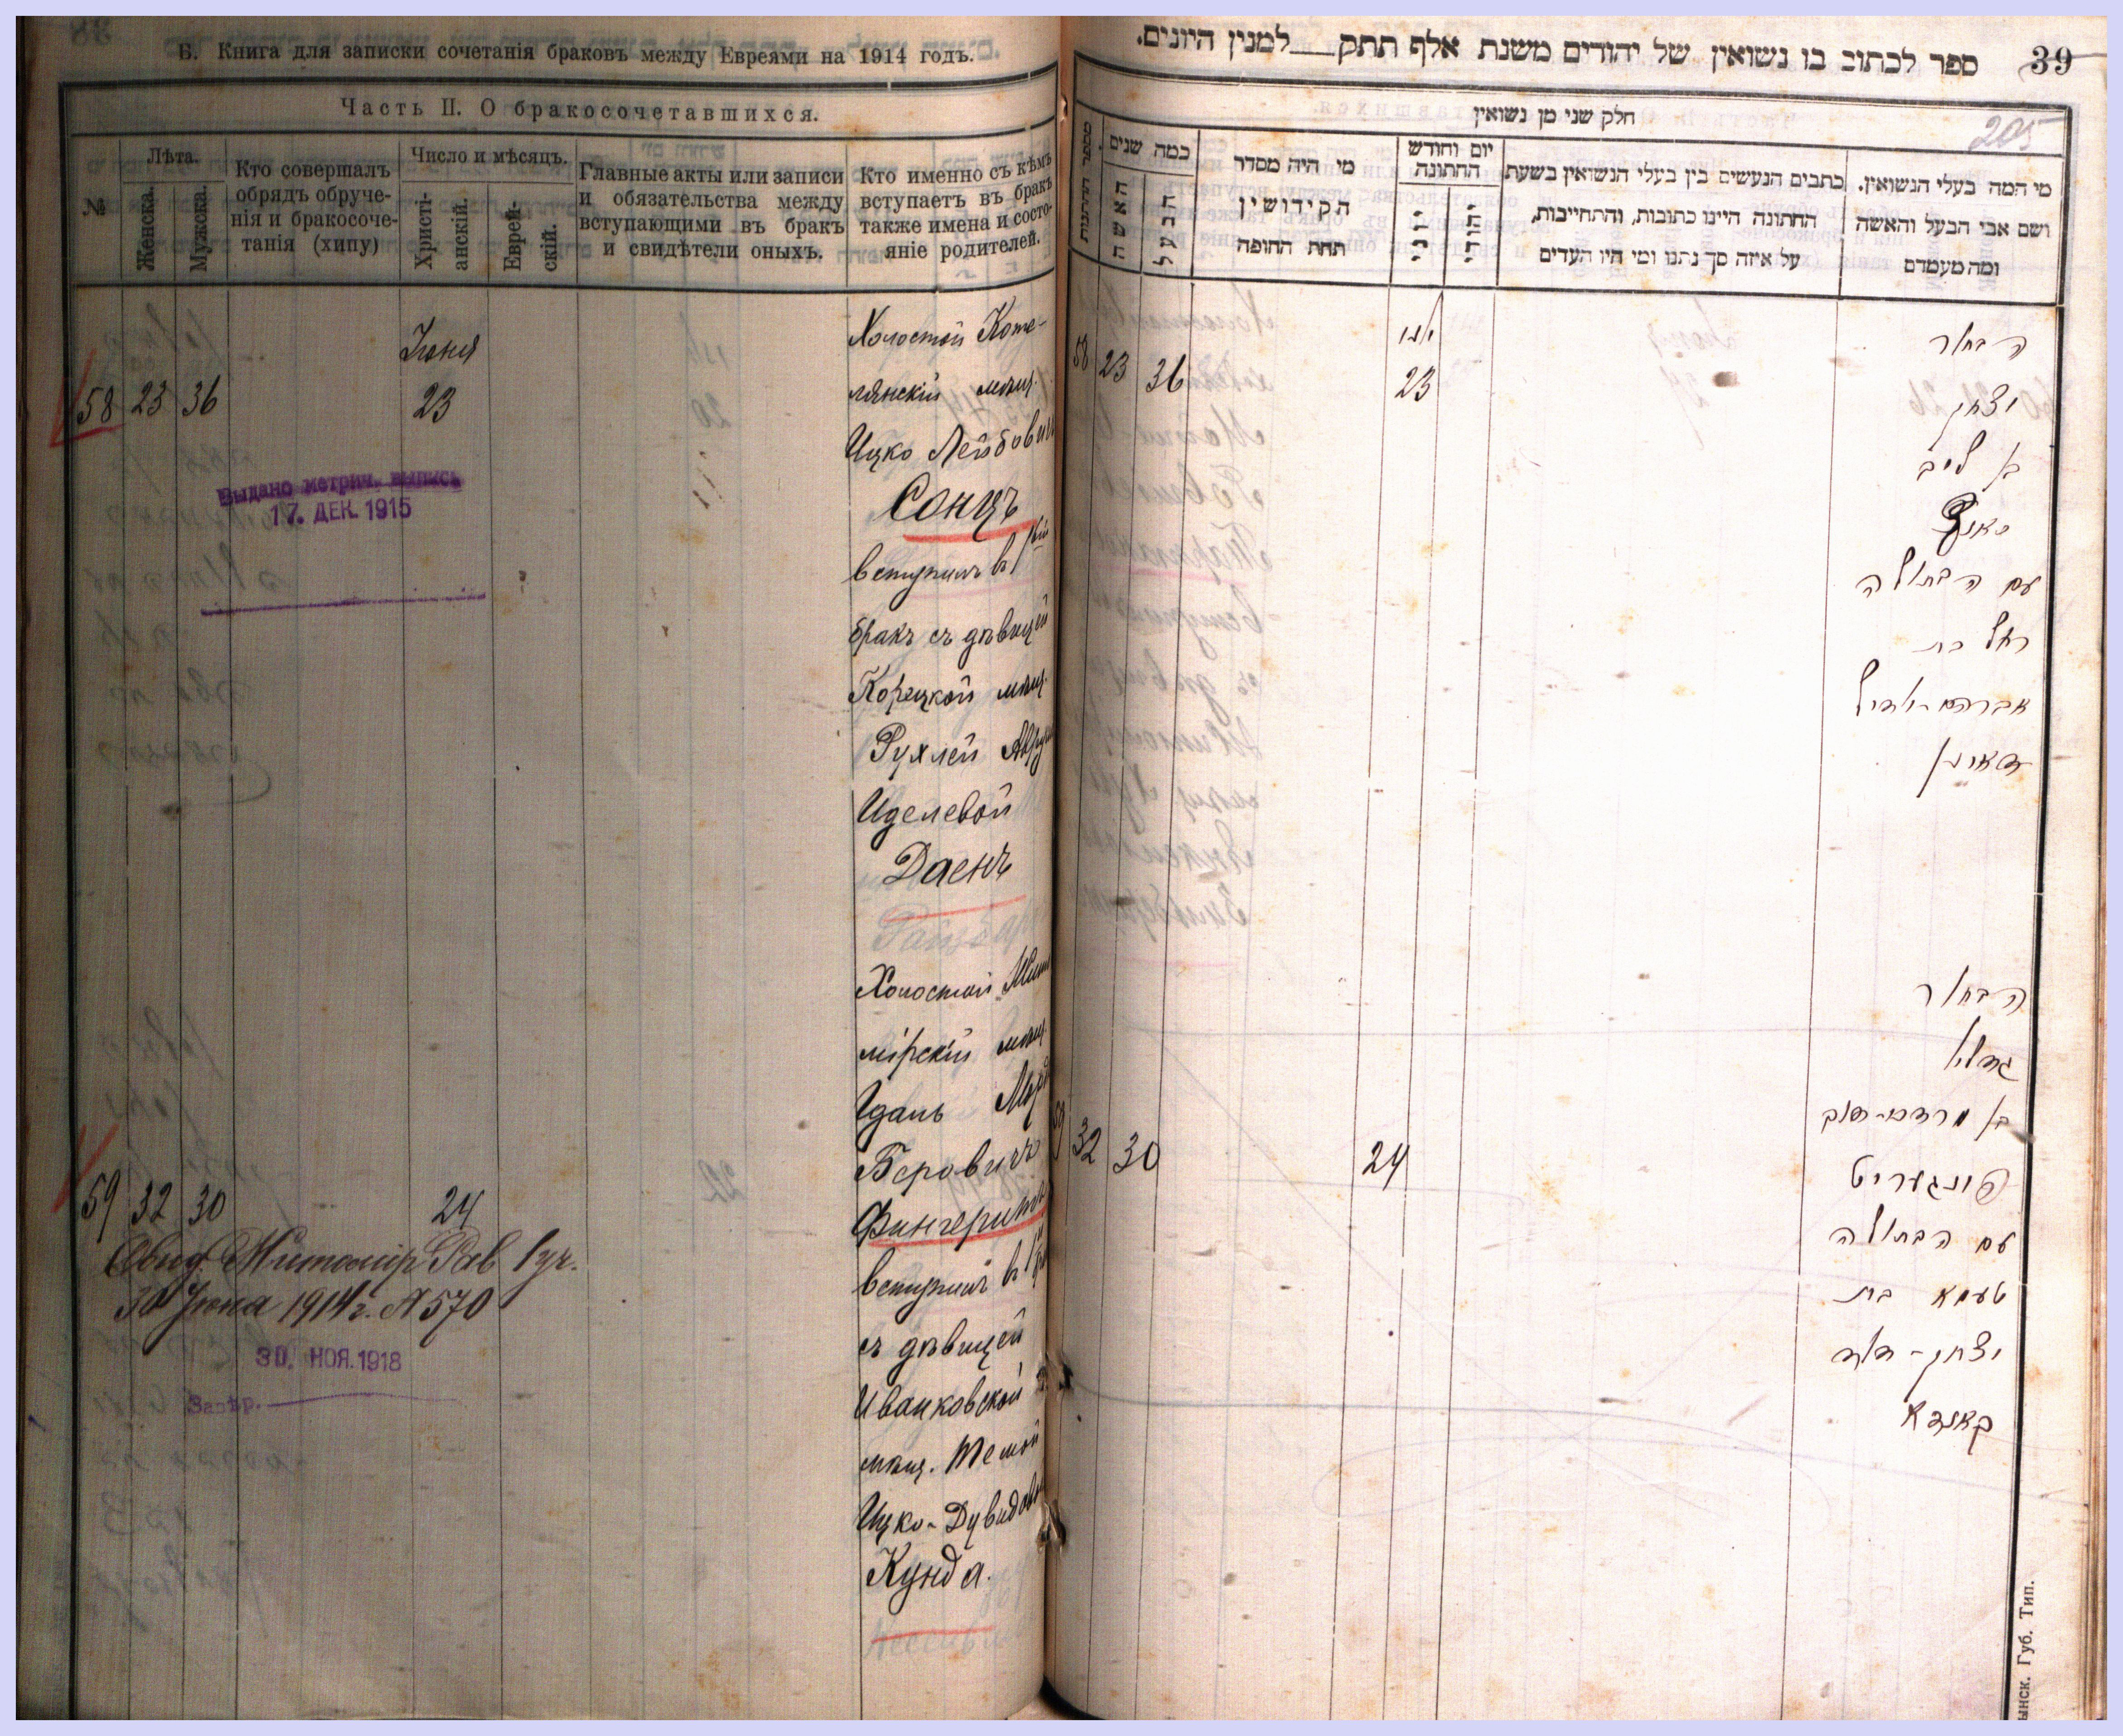 Б. Книга для записки сочетанія браковъ между Евреями на 1914 годъ.
Часть II. О бракосочетавшихся.
№
Лѣта.
Женска.
Мужска.
Кто совершалъ
обрядъ обруче-
нія и бракосоче-
танія (хипу)
Число и мѣсяцъ.
Христі-
анскій.
Еврей-
скій.
Главные акты или записи
и обязательства между
вступающими въ бракъ
и свидѣтели оныхъ.
Кто именно съ кѣмъ
вступаетъ въ бракъ
также имена и состо-
яніе родителей.
Іюня
58 23 36 23
Холостой Коте-
лянскій мѣщ.
Ицко Лейбович
Сонцъ
вступилъ въ 1й
бракъ съ дѣвицей
Корецкой мѣщ.
Рухлей Аврум
Иделевой
Даенъ
Выдано метрич. выпись
17. ДЕК. 1915
59 32 30 24
Холостой
мѣщ.
Гдаль Морд
Беровичъ
Фингеритъ
вступилъ въ 1й
съ дѣвицей
Иванковской
мѣщ. Темой
Ицко-Дувидов
Кунда.
Свид. Житомір Рав 1 уч.
30 Іюня 1914 г. № 570
30. НОЯ. 1918
Завѣр.
ספר לכתוב בו נשואין של יהודים משנת אלף תתק למנין היונים.
39
205
חלק שני מן נשואין
מספר החתנות
כמה שנים
האשה
הבעל
מי היה מסדר
הקידושין
תחת החופה
יום וחודש
החתונה
יוני
יהודי
כתבים הנעשים בין בעלי הנשואין בשעת
החתונה היינו כתובות, והתחייבות,
על איזה סך נתנו ומי היו העדים
מי המה בעלי הנשואין.
ושם אבי הבעל והאשה
ומה מעמדם
58 23 36
יוני
23
הבחור
יצחק
בן ליב
סאנץ
עם הבתולה
רחל בת
אברהם-יודיל
דאיין
59 32 30 24
הבחור
גדליא
בן מרדכי-דוב
פינגעריט
עם הבתולה
טעמא בת
יצחק-דוד
קאנדא
ынск. Губ. Тип.